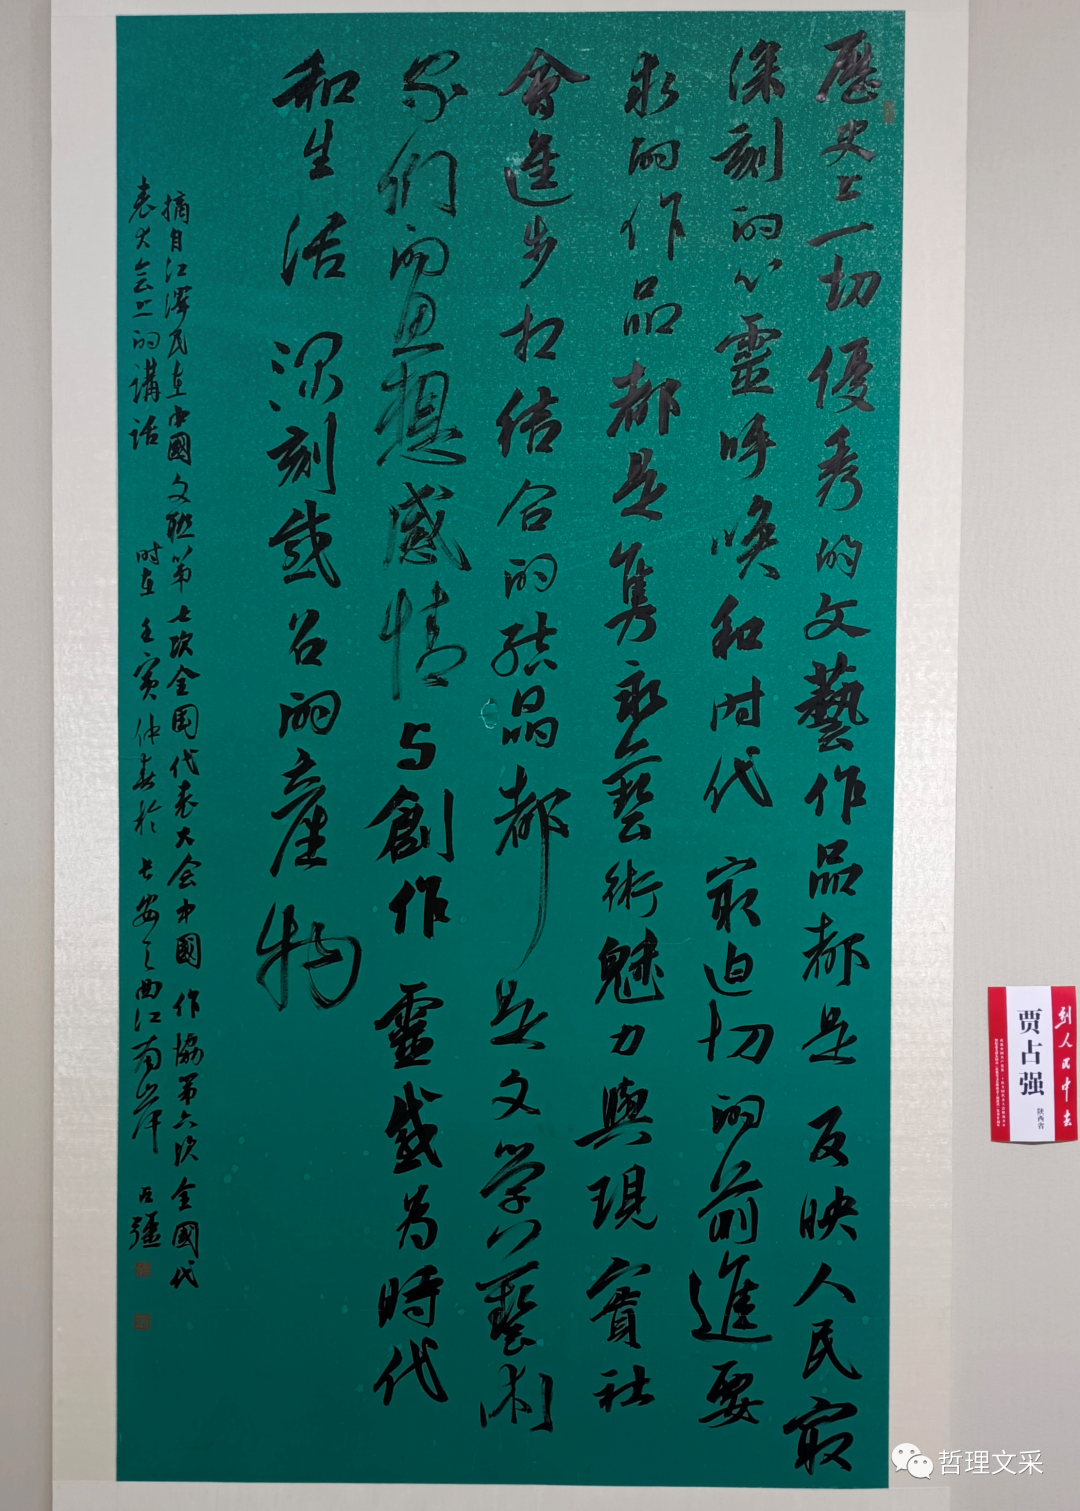 歷史上一切優秀的文藝作品都是反映人民最
深刻的心靈呼喚和时代最迫切的前進要
求的作品都是隽永藝術魅力與現實社
會進步相结合的结晶都是文学藝术
家们的思想感情与創作靈感为時代
和生活深刻感召的産物
摘自江澤民在中國文联第七次全国代表大会中國作協第六次全國代
表大会上的講话 时在壬寅仲春於长安之曲江南岸 占疆
到人民中去
贾占强
陕西省
哲理文采